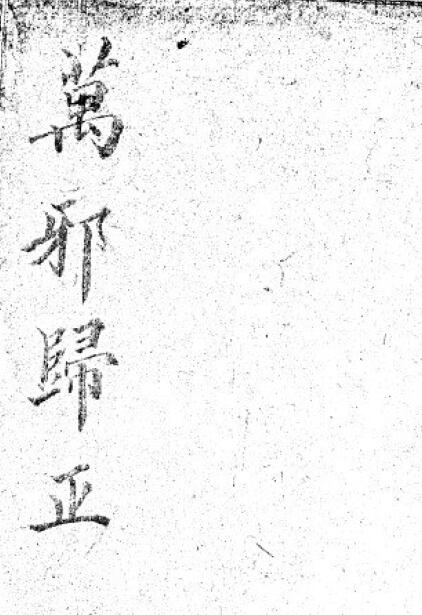 萬邪歸正